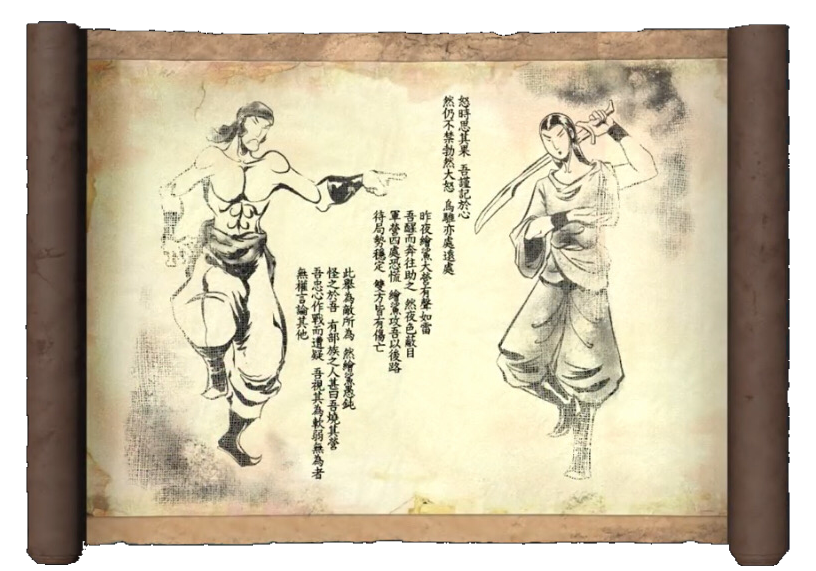 怒時思其果 吾謹記於心
然仍不禁勃然大怒 烏騅亦處遠處
昨夜繪鯊大營有聲如雷
吾醒而奔往助之 然夜色蔽目
軍營四處恐慌 繪鯊攻吾以後路
待局勢穩定 雙方皆有傷亡
此舉為敵所為 然繪鯊愚鈍
怪之於吾 有部族之人甚曰吾燒其營
吾忠心作戰而遭疑 吾視其為軟弱無為者
無權言論其他